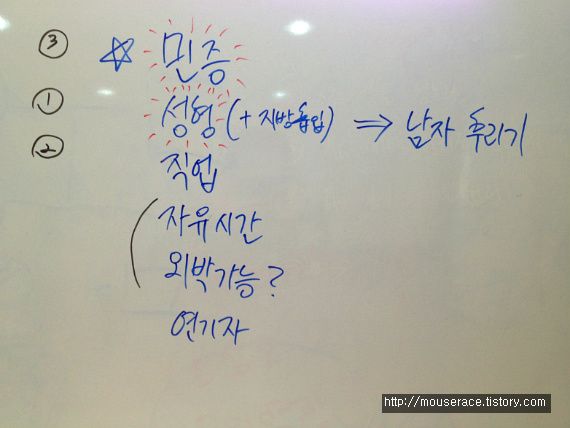 ③ ☆ 민증
① 성형 (+ 지방흡입) ⇒ 남자 후리기
② 직업
( 자유시간
외박가능?
연기자
http://mouserace.tistory.com